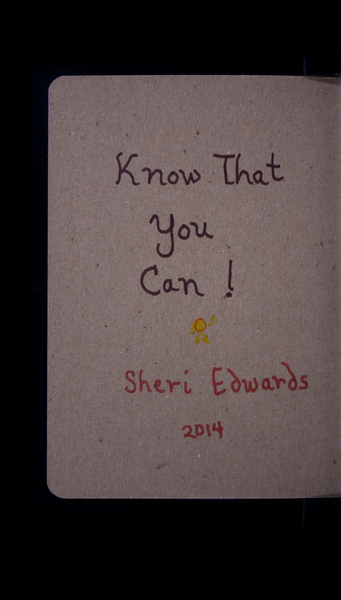 Know That
You
Can !
Sheri Edwards
2014